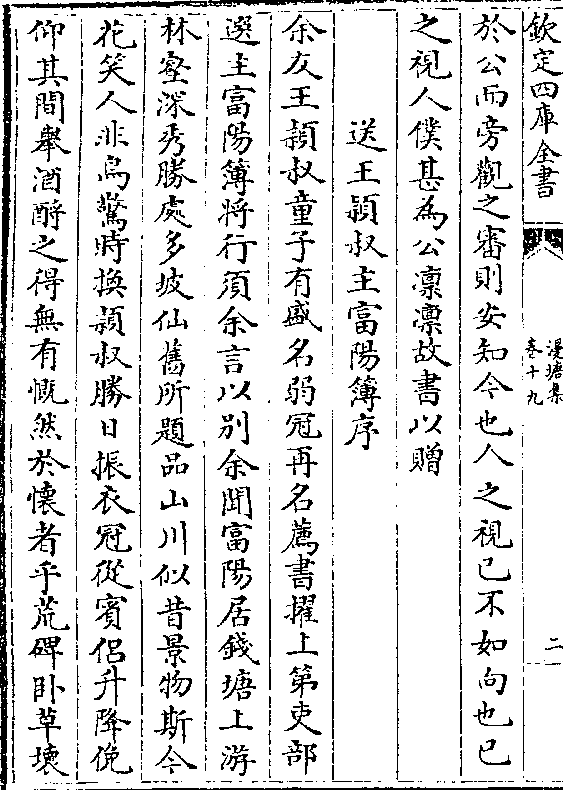 欽定四庫全書
漫塘集
卷十九
二
於公而旁觀之審則安知今也人之視已不如向也已
之視人僕甚為公凛凛故書以贈
送王頴叔主富陽簿序
余友王頴叔童子有盛名弱冠再名薦書擢上第吏部
選主富陽簿將行須余言以别余聞富陽居錢塘上游
林壑深秀勝處多坡仙舊所題品山川似昔景物斯今
花笑人非鳥驚時換頴叔勝日振衣冠從賓侣升降俛
仰其間舉酒酹之得無有慨然於懷者乎荒碑卧草壞